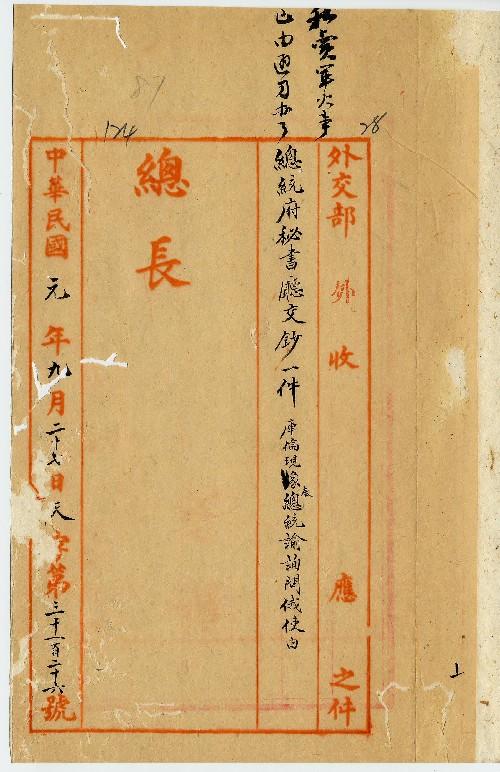 私賣軍火事
已由函司办了
外交部 外 收 應 之件
總統府秘書廳交鈔一件 庫倫現象 總統諭詢問俄使由
辰
總長
中華民國元年九月二十七日 天字第三十一百二十六號
87
124
28
上